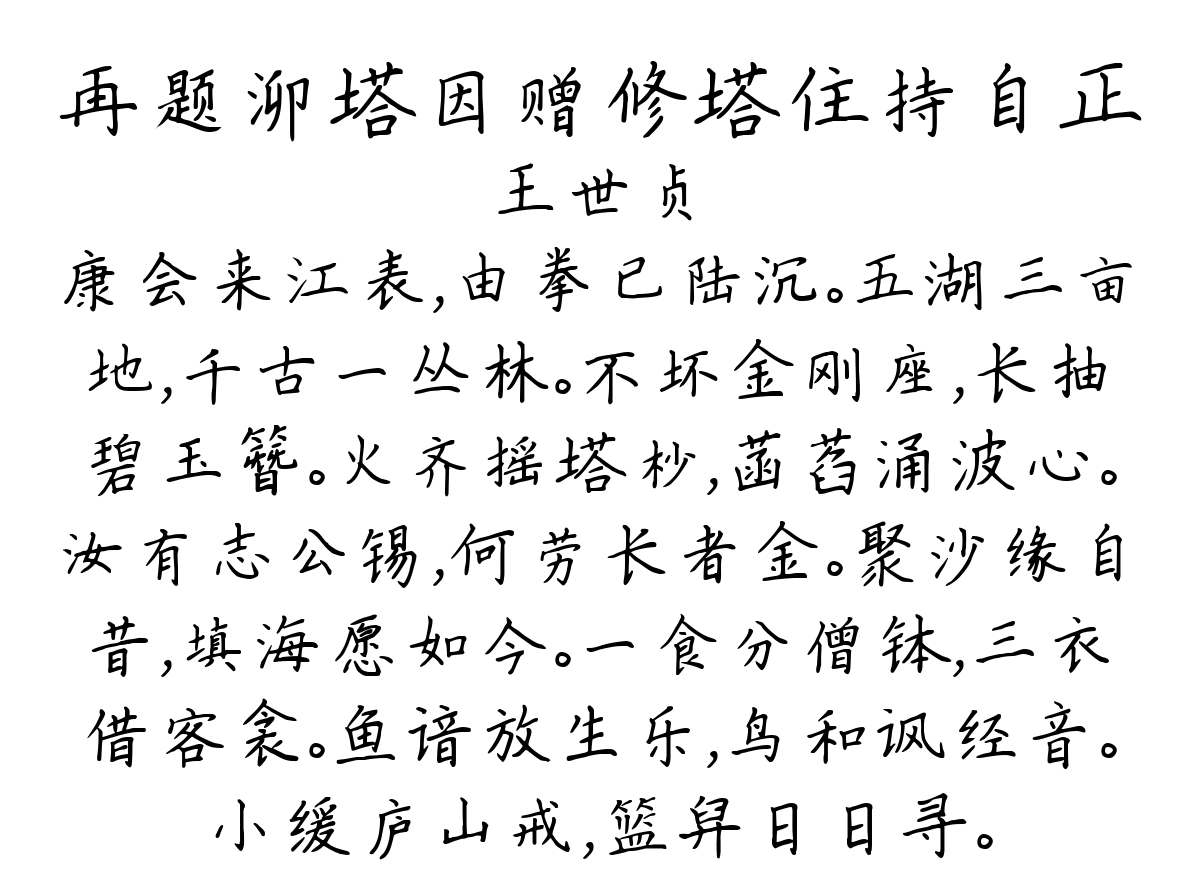 再题泖塔因赠修塔住持自正
王世贞
康会来江表,由拳已陆沉。五湖三亩
地,千古一丛林。不坏金刚座,长抽
碧玉簪。火齐摇塔杪,菡萏涌波心。
汝有志公锡,何劳长者金。聚沙缘自
昔,填海愿如今。一食分僧钵,三衣
借客衾。鱼谙放生乐,鸟和讽经音。
小缓庐山戒,篮舁日日寻。